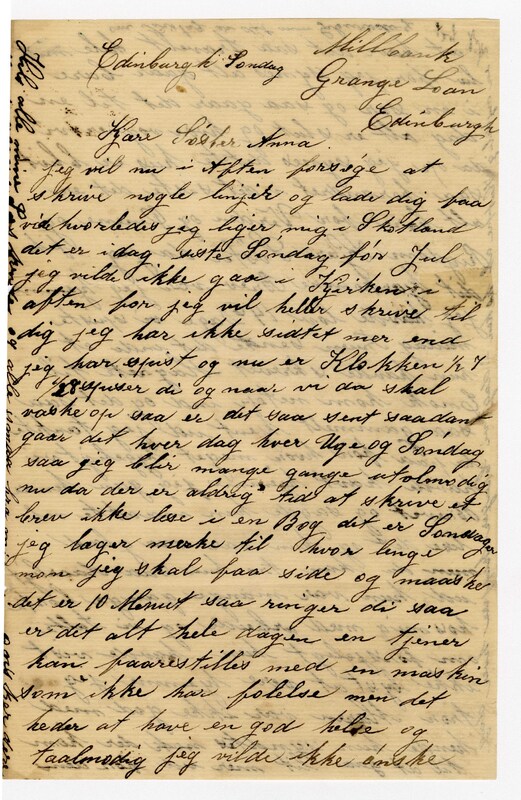 Millbank
Edinburgh Sondag Grange Loan
Edinburgh
Kjære Søster Anna.
jeg vil nu i Aften forsøge at
skrive nogle linjer og lade dig faa
vide hvorledes jeg liger mig i Skotland
det er idag siste Søndag før Jul
jeg vilde ikke gaa i Kjirken i
aften for jeg vil heller skrive til
dig jeg har ikke sidtet mer end
jeg har spist og nu er Klokken ½ 7
spiser di og naar vi da skal
vaske op saa er det saa sent saadant
gaar det hver dag hver Uge og Søndag
saa jeg blir mange gange utolmodig
nu da der er aldrig tid at skrive et
brev ikke lese i en Bog det er Søndager
jeg læger merke til hvor lenge
mon jeg skal faa side og maaske
det er 10 Menut saa ringer di saa
er det alt hele dagen en tjener
kan faarestilles med en maskin
som ikke har følelse men det
heder at have en god helse og
taalmodig jeg vilde ikke ønske
Hils alle mine og alle